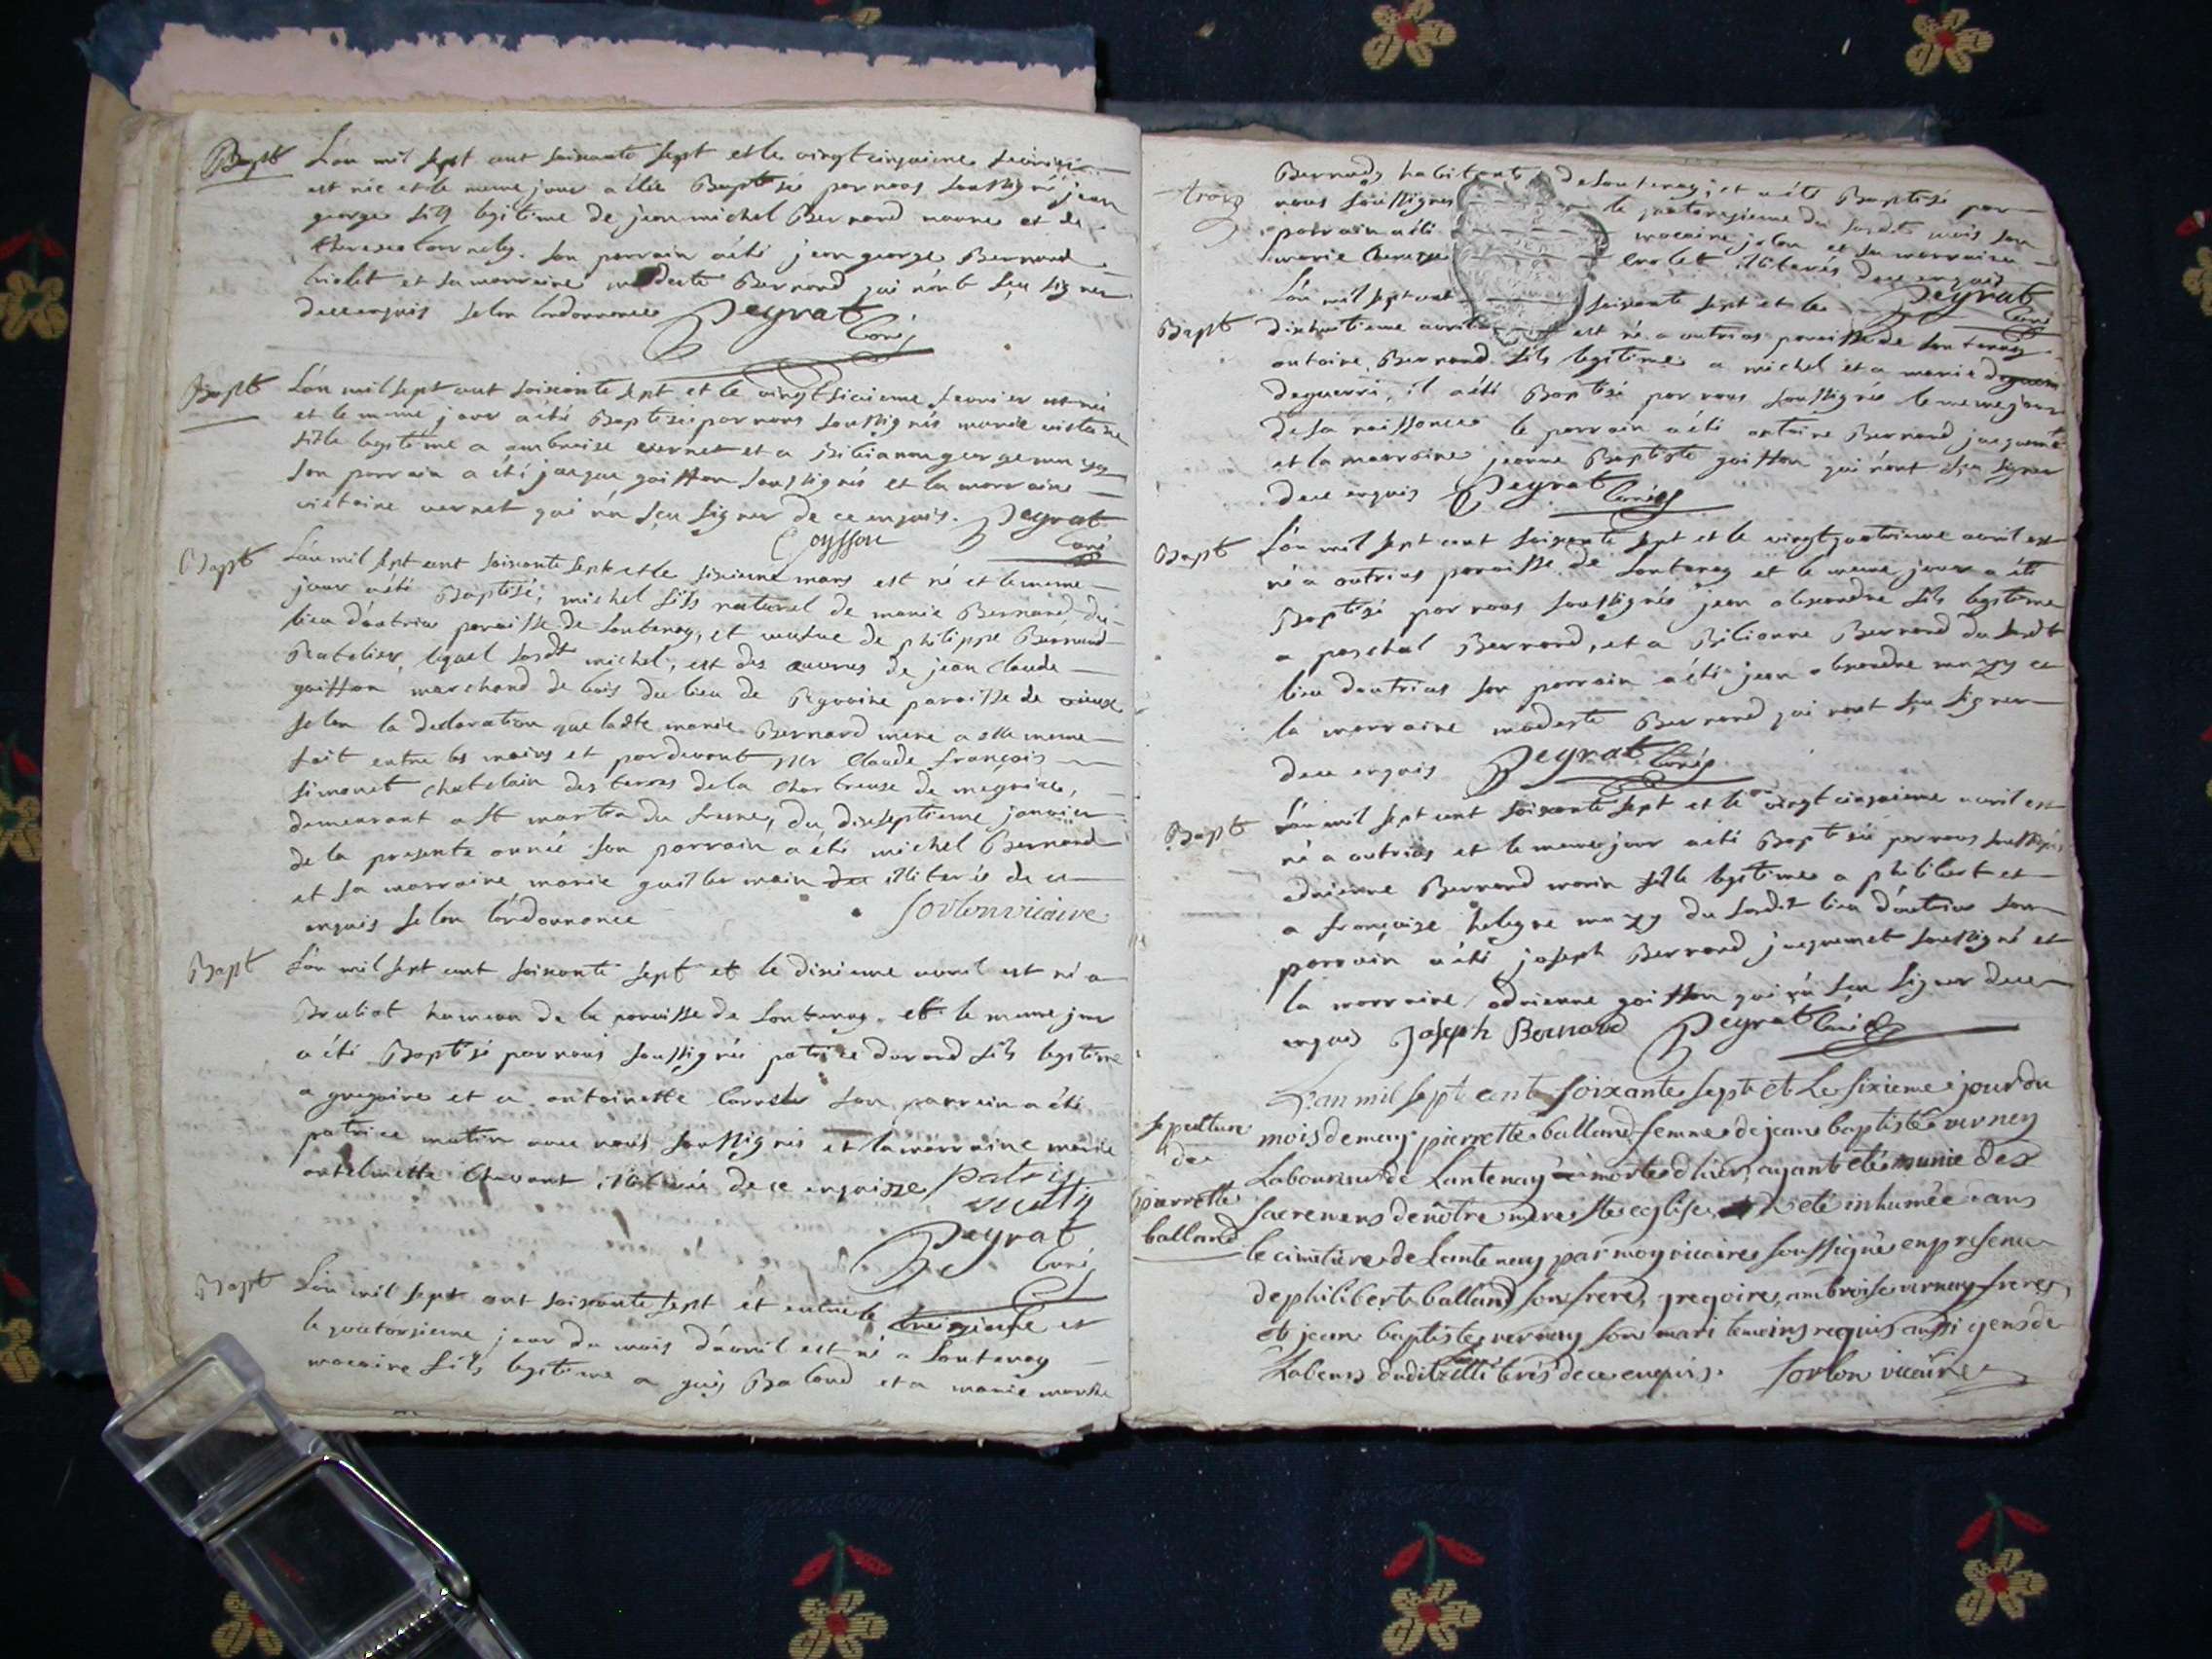 Bapt L'an mil sept cent soixante sept et le vingt cinquieme fevrier
est née et le meme jour a été Baptisé par nous soussigné jean
george fils legitime de jean michel Bernard et de
therese tournely. son parrain a été jean george Bernard
et sa marraine modeste Bernard qui n'ont sçu signer
de ce enquis selon l'ordonnance Peyrat
Curé
Bapt L'an mil sept cent soixante sept et le vingt sixieme fevrier est née
et le meme jour a été Baptisée par nous soussignés marie victoire
fille legitime a ambroise vernet et a
son parrain a été jacque goiffon soussignés et la marraine
victoire vernet qui n'a sçu signer de ce enquis. Peyrat
Goyffon Curé
Bapt L'an mil sept cent soixante sept et le sixieme mars est né et le meme
jour a été Baptisé, michel fils naturel de marie Bernard, du
lieu d'outriaz paroisse de lantenay, et veufve de philippe Bernard
Ratelier, lequel sosdt michel, est des œuvres de jean claude
goiffon marchand de bois du lieu de paroisse de vieux
selon la declaration que ladte marie Bernard mere a elle meme
fait entre les mains et pardevant Mr Claude françois
simonet chatelain des terres de la Chartreuse de meyriat,
demeurant a st martin du fresne, du dixseptieme janvier
de la presente année son parrain a été michel Bernard
et sa marraine marie guillermain illiterés de ce
enquis selon l'ordonnance Sorlon vicaire
Bapt L'an mil sept cent soixante sept et le dixieme avril est né a
hameau de la paroisse de lantenay. et le meme jour
a été Baptisé par nous soussignés patrice durand fils legitime
a gregoire et a antoinette son parrain a été
patrice mutin avec nous soussignés et la marraine marie
antelmette Chavant illiterée de ce enquise patris
mutin
Peyrat
Curé
Bapt L'an mil sept cent soixante sept et entre le treizieme et
le quatorzieme jour du mois d'avril est né a lantenay
macaire fils legitime a guy Baland et a marie
Bernard, habitants de lantenay; et a été Baptisé par
trois nous soussignes le quatorzieme du susdit mois son
parrain a été macaire jolon et sa marraine
marie therese illiterés de ce enquis
L'an mil sept cent soixante sept et le Peyrat
Curé
Bapt dixhuitieme avril est né a outrias paroisse de lantenay
antoine Bernard fils legitime a michel et a marie
deguerri, il a été Baptisé par nous soussignés le meme jour
de sa naissance le parrain a été antoine Bernard jacquemet
et la marraine jeanne Baptiste goiffon qui n'ont sçu signer
de ce enquis Peyrat Curé
Bapt L'an mil sept cent soixante sept et le vingt quatrieme avril est
né a outrias paroisse de lantenay et le meme jour a été
Baptisé par nous soussignés jean alexandre fils legitime
a paschal Bernard, et a Bilianne Bernard du susdt
lieu doutrias son parrain a été jean alexandre et
la marraine modeste Bernard qui n'ont sçu signer
de ce enquis Peyrat Curé
Bapt L'an mil sept cent soixante sept et le vingt cinquieme avril est
né a outrias et le meme jour a été Baptisée par nous soussignés
adrienne Bernard morin fille legitime a philibert et
a françoise du susdit lieu d'outrias son
parrain a été joseph Bernard jacquemet soussigné et
la marraine adrienne goiffon qui n'a sçu signer de ce
enquis Joseph Bernard Peyrat Curé
L'an mil sept cent soixante sept et le sixieme jour du
sepulture mois de may pierrette balland femme de jean baptiste verney
de Laboureur de Lantenay morte d'hier, ayant été munie des
pierrette sacremens de nôtre mere ste eglise, a été inhumée dans
balland le cimetiere de Lantenay par moy vicaire soussigné en presence
de philibert balland son frere, gregoire, ambroise vernay freres
et jean baptiste vernay son mari temoins requis aussi gens de
Labeur dudit lieu illiterés de ce enquis. Sorlon vicaire